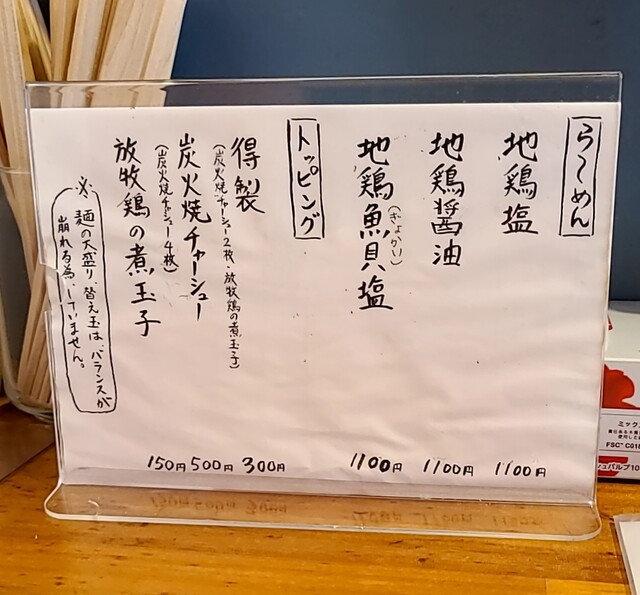 らーめん
地鶏塩 1100円
地鶏醤油 1100円
地鶏魚貝塩(ぎょかい) 1100円
トッピング
得製 300円
(炭火焼チャーシュー2枚・放牧鶏の煮玉子)
炭火焼チャーシュー 500円
(炭火焼チャシュー4枚)
放牧鶏の煮玉子 150円
※麺の大盛り、替え玉は、バランスが
崩れる為、していません。
ミックス
FSC® C018
シュパルプ10